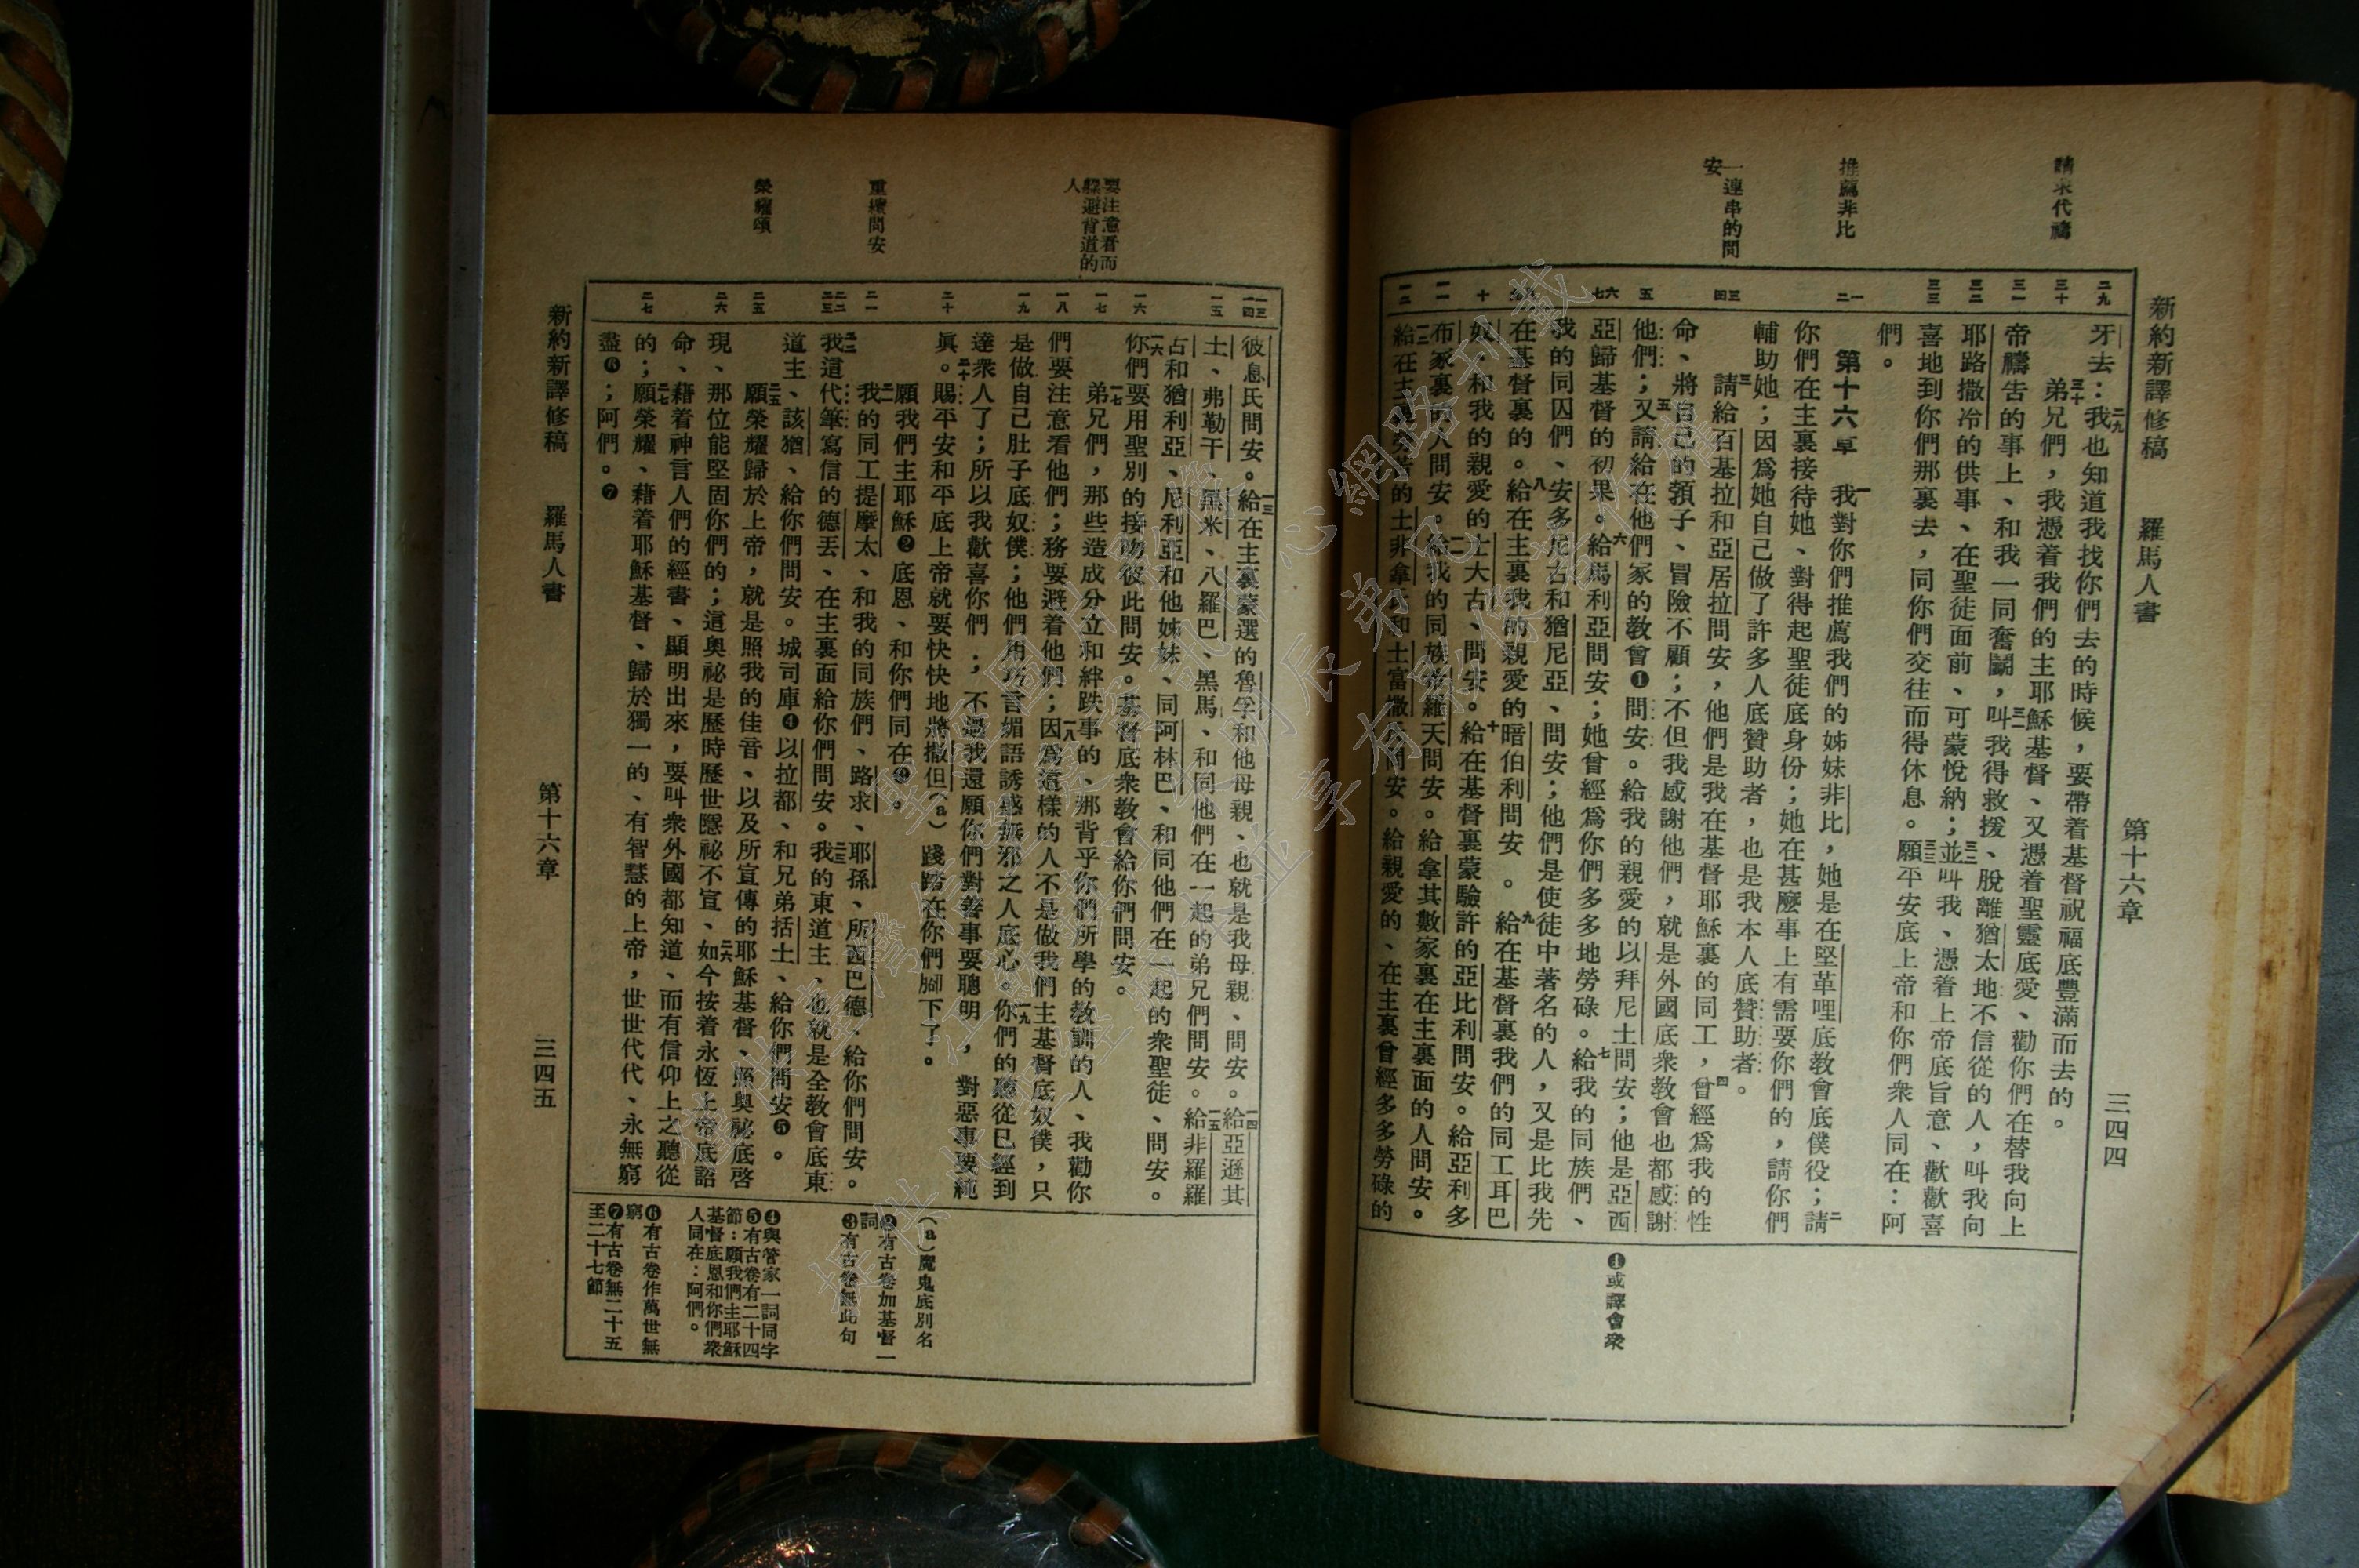 新約新譯修稿 羅馬人書 第十六章 三四四
請求代禱
推薦非比
一連串的問
安
二九
三十
三一
三二
三三
一二
三四
五
六七
十
一一
一二
牙去:二九我也知道我找你們去的時候,要帶着基督祝福底豐滿而去的。
三十弟兄們,我憑着我們的主耶穌基督、又憑着聖靈底愛、勸你們在替我向上
帝禱告的事上、和我一同奮鬭,三一叫我得救援、脫離猶太地不信從的人,叫我向
耶路撒冷的供事、在聖徒面前、可蒙悅納;三二並叫我、憑着上帝底旨意、歡歡喜
喜地到你們那裏去,同你們交往而得休息。三三願平安底上帝和你們衆人同在:阿
們。
第十六章 一我對你們推薦我們的姊妹非比,她是在堅革哩底教會底僕役;二請
你們在主裏接待她、對得起聖徒底身份;她在甚麼事上有需要你們的,請你們
輔助她;因爲她自己做了許多人底贊助者,也是我本人底贊助者。
三請給百基拉和亞居拉問安,他們是我在基督耶穌裏的同工,四曾經爲我的性
命、將自己的頸子、冒險不顧;不但我感謝他們,就是外國底衆教會也都感謝
他們;五又請給在他們家的教會❶問安。給我的親愛的以拜尼土問安;他是亞西
亞歸基督的初果。六給馬利亞問安;她曾經爲你們多多地勞碌。七給我的同族們、
我的同囚們、安多尼古和猶尼亞、問安;他們是使徒中著名的人,又是比我先
在基督裏的。八給在主裏我的親愛的暗伯利問安。九給在基督裏我們的同工耳巴
奴、和我的親愛的士大古、問安。十給在基督裏蒙驗許的亞比利問安。給亞利多
布家裏的人問安。一一給我的同族希羅天問安。給拿其數家裏在主裏面的人問安。
一二給在主裏勞苦的土非拿氏和土富撒氏問安。給親愛的、在主裏曾經多多勞碌的
❶或譯會衆
新約新譯修稿 羅馬人書 第十六章 三四五
要注意看而
躱避背道的
人
重續問安
榮耀頌
一三一四
一五
一六
一七
一八
一九
二十
二一
二二二三
二五
二六
二七
彼息氏問安。一三給在主裏蒙選的魯孚和他母親、也就是我母親、問安。一四給亞遜其
土、弗勒干、黑米、八羅巴、黑馬、和同他們在一起的弟兄們問安。一五給非羅羅
古和猶利亞、尼利亞和他姊妹、同阿林巴、和同他們在一起的衆聖徒、問安。
一六你們要用聖別的接吻彼此問安。基督底衆教會給你們問安。
一七弟兄們,那些造成分立和絆跌事的、那背乎你們所學的教訓的人、我勸你
們要注意看他們;務要避着他們;一八因爲這樣的人不是做我們主基督底奴僕,只
是做自己肚子底奴僕;他們用巧言媚語誘惑無邪之人底心。一九你們的聽從已經到
達衆人了;所以我歡喜你們;不過我還願你們對善事要聰明,對惡事要純
眞。二十賜平安和平底上帝就要快快地將撒但(a)踐踏在你們腳下了。
願我們主耶穌❷底恩、和你們同在❸。
二一我的同工提摩太、和我的同族們、路求、耶孫、所西巴德、給你們問安。
二二我這代筆寫信的德丟、在主裏面給你們問安。二三我的東道主、也就是全教會底東
道主、該猶、給你們問安。城司庫❹以拉都、和兄弟括土、給你們問安❺。
二五願榮耀歸於上帝,就是照我的佳音、以及所宣傳的耶穌基督、照奧祕底啓
現、那位能堅固你們的;這奧祕是歷時歷世隱祕不宣、二六如今按着永恆上帝底詔
命、藉着神言人們的經書、顯明出來,要叫衆外國都知道、而有信仰上之聽從
的;二七願榮耀、藉着耶穌基督、歸於獨一的、有智慧的上帝,世世代代、永無窮
盡❻;阿們。❼
(a)魔鬼底別名
❷有古卷加基督一
詞
❸有古卷無此句
❹與管家一詞同字
❺有古卷有二十四
節:願我們主耶穌
基督底恩和你們衆
人同在:阿們。
❻有古卷作萬世無
窮
❼有古卷無二十五
至二十七節